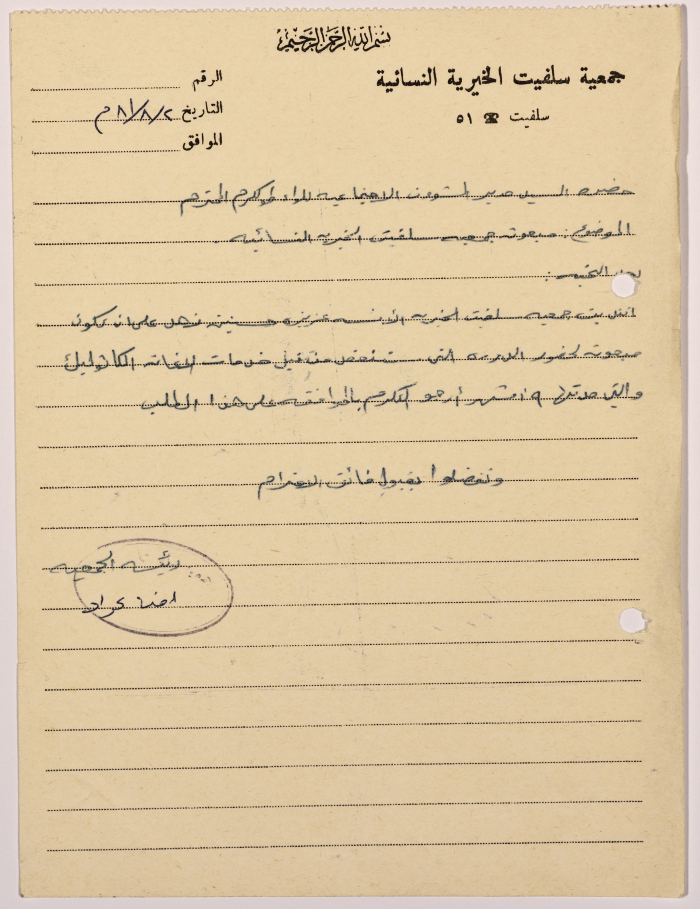 بسم الله الرحمن الرحيم
جمعية سلفيت الخيرية النسائية
سلفيت ☎ ٥١
الرقم
التاريخ ٢/٨/٨١م
الموافق
حضرة السيد مدير الشؤون الاجتماعية للواء طولكرم المحترم
الموضوع: مبعوثة جمعية سلفيت الخيرية النسائية.
بعد التحية:
جمعية سلفيت الخيرية الآنسة عزيزة على ان تكون
مبعوثة لحضور الدورة التي ستعقد من قبل خدمات الاغاثة الكاثوليك
والتي مدتها ٩ اشهر أرجو التكرم بالموافقة على هذا الطلب
وتفضلوا بقبول فائق الاحترام
رئيسة الجمعية